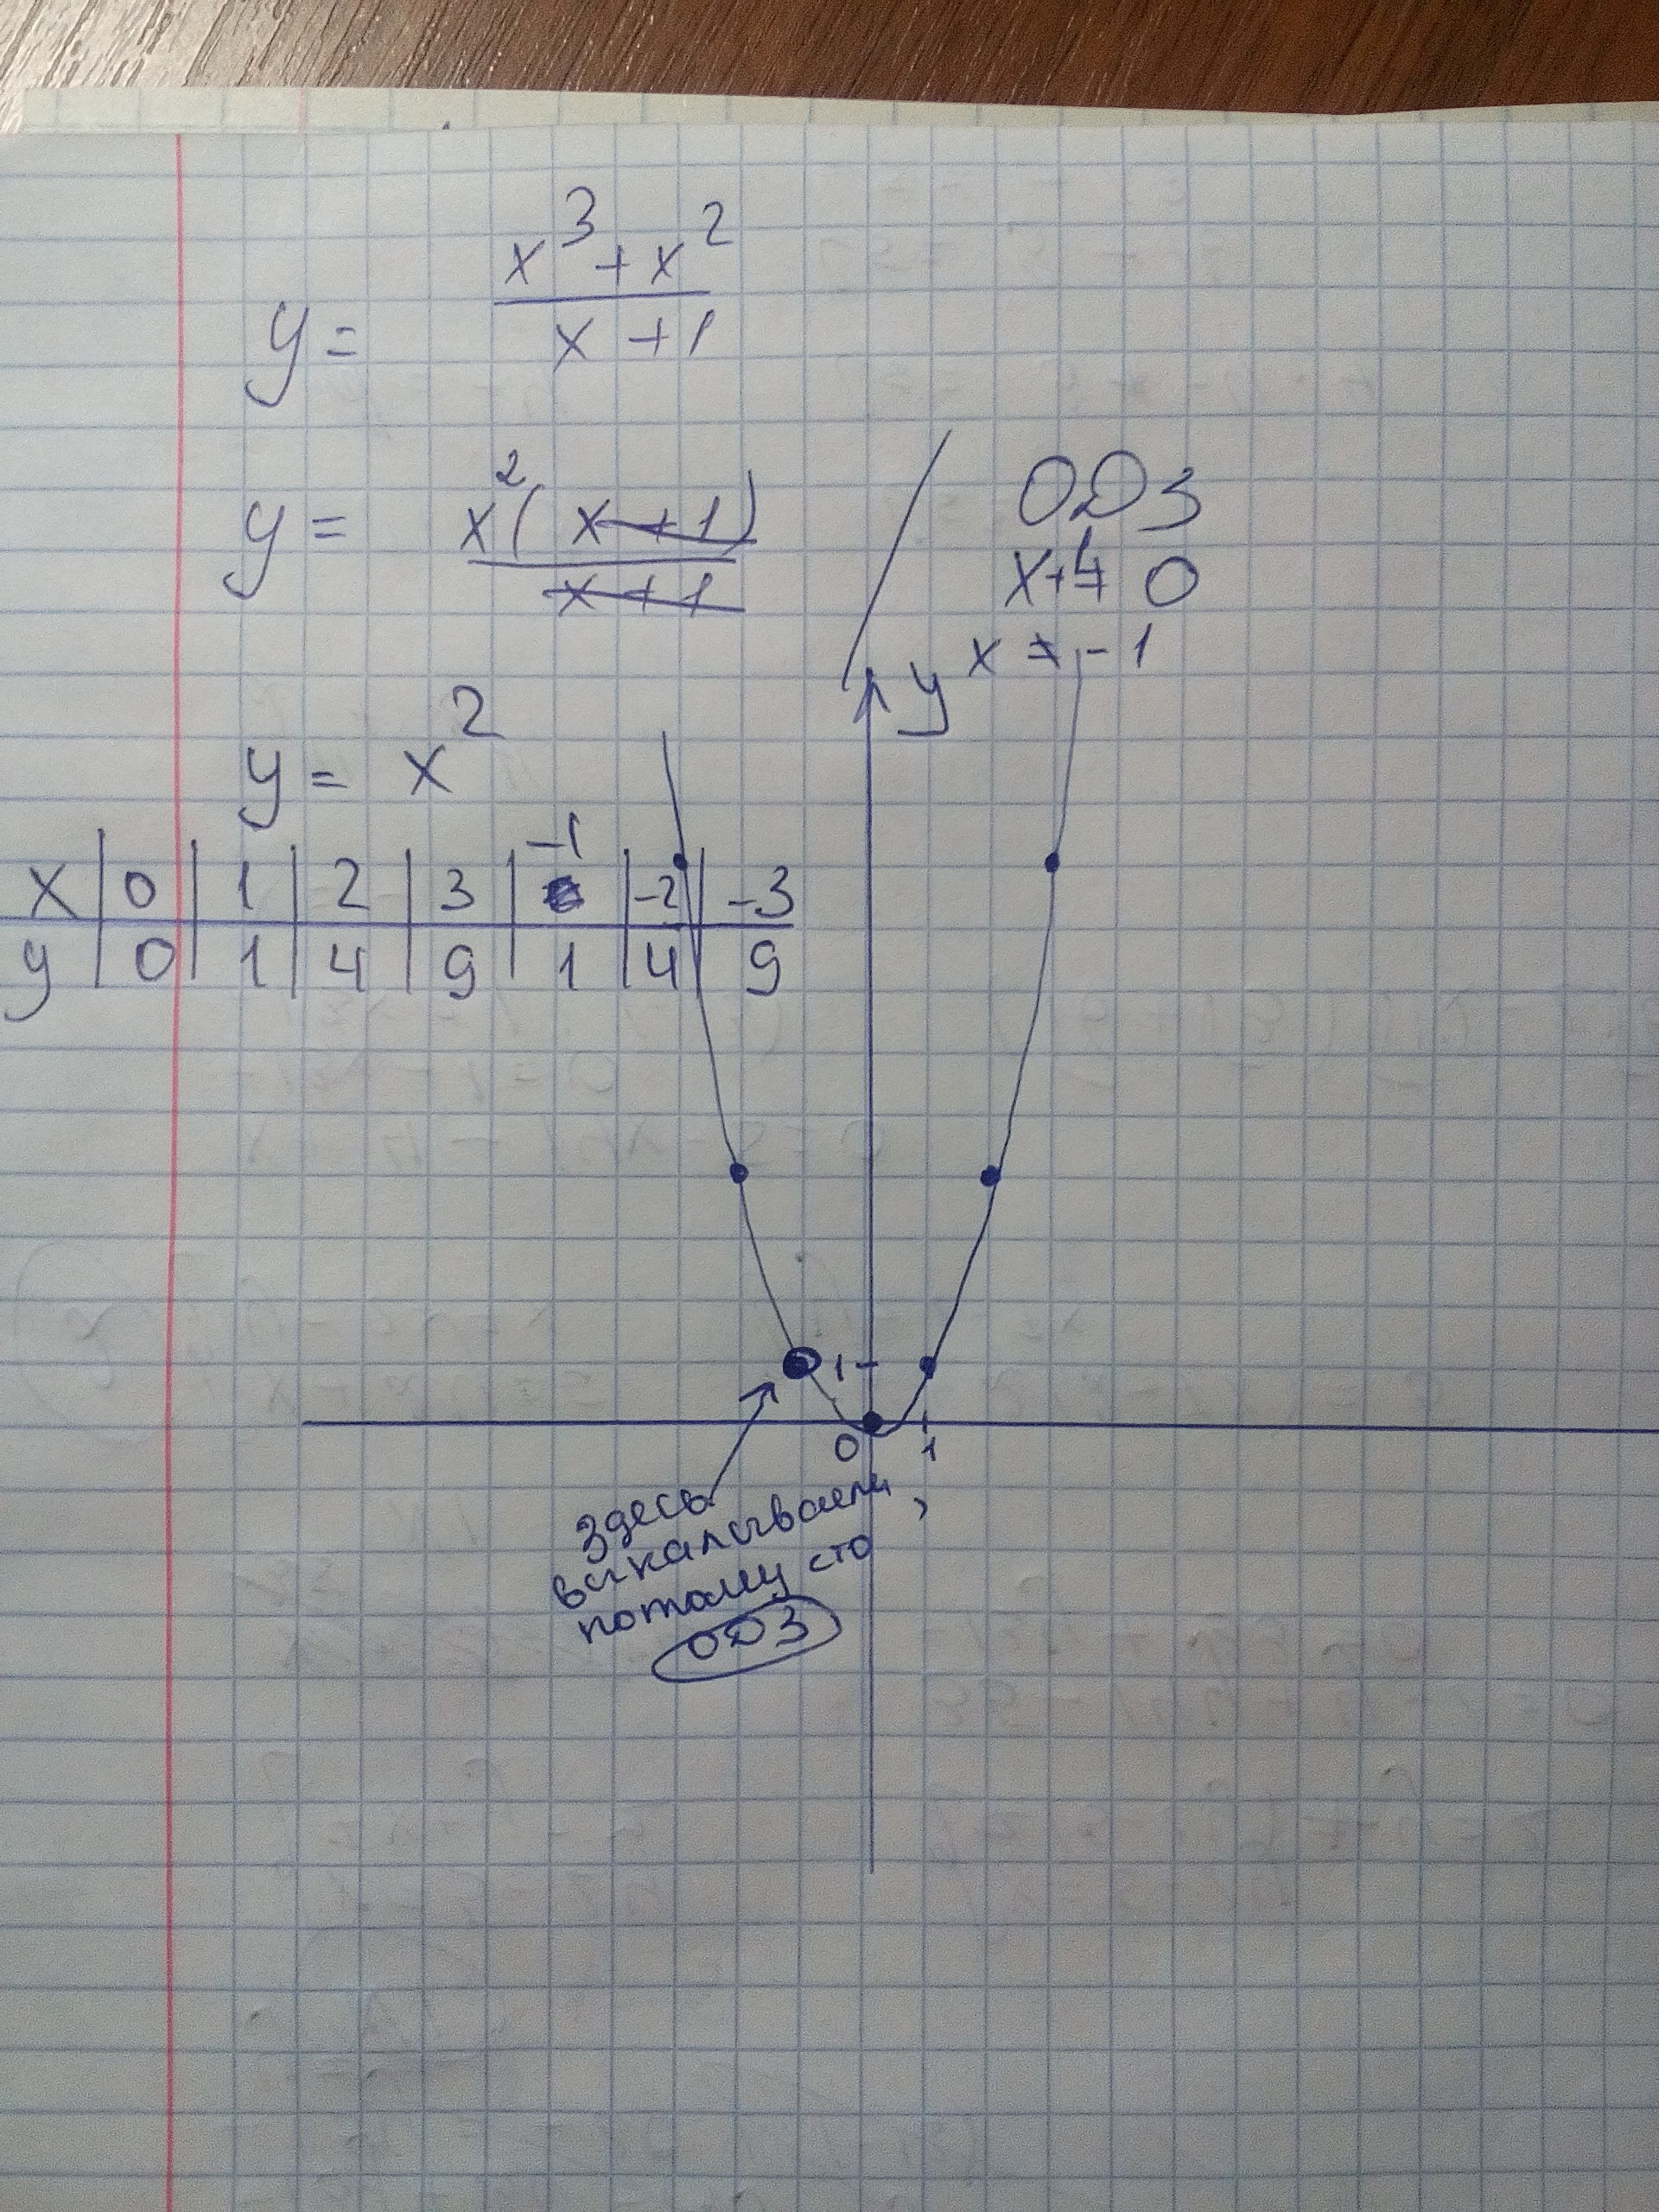 y = x³ + x² / x + 1
y = x² ( x + 1 ) / x + 1
ОДЗ
x + 1 ≠ 0
x ≠ - 1
y = x²
x | 0 | 1 | 2 | 3 | -1 | -2 | -3
y | 0 | 1 | 4 | 9 | 1 | 4 | 9
y
1
0
1
Здесь
выкалываем,
потому что
ОДЗ